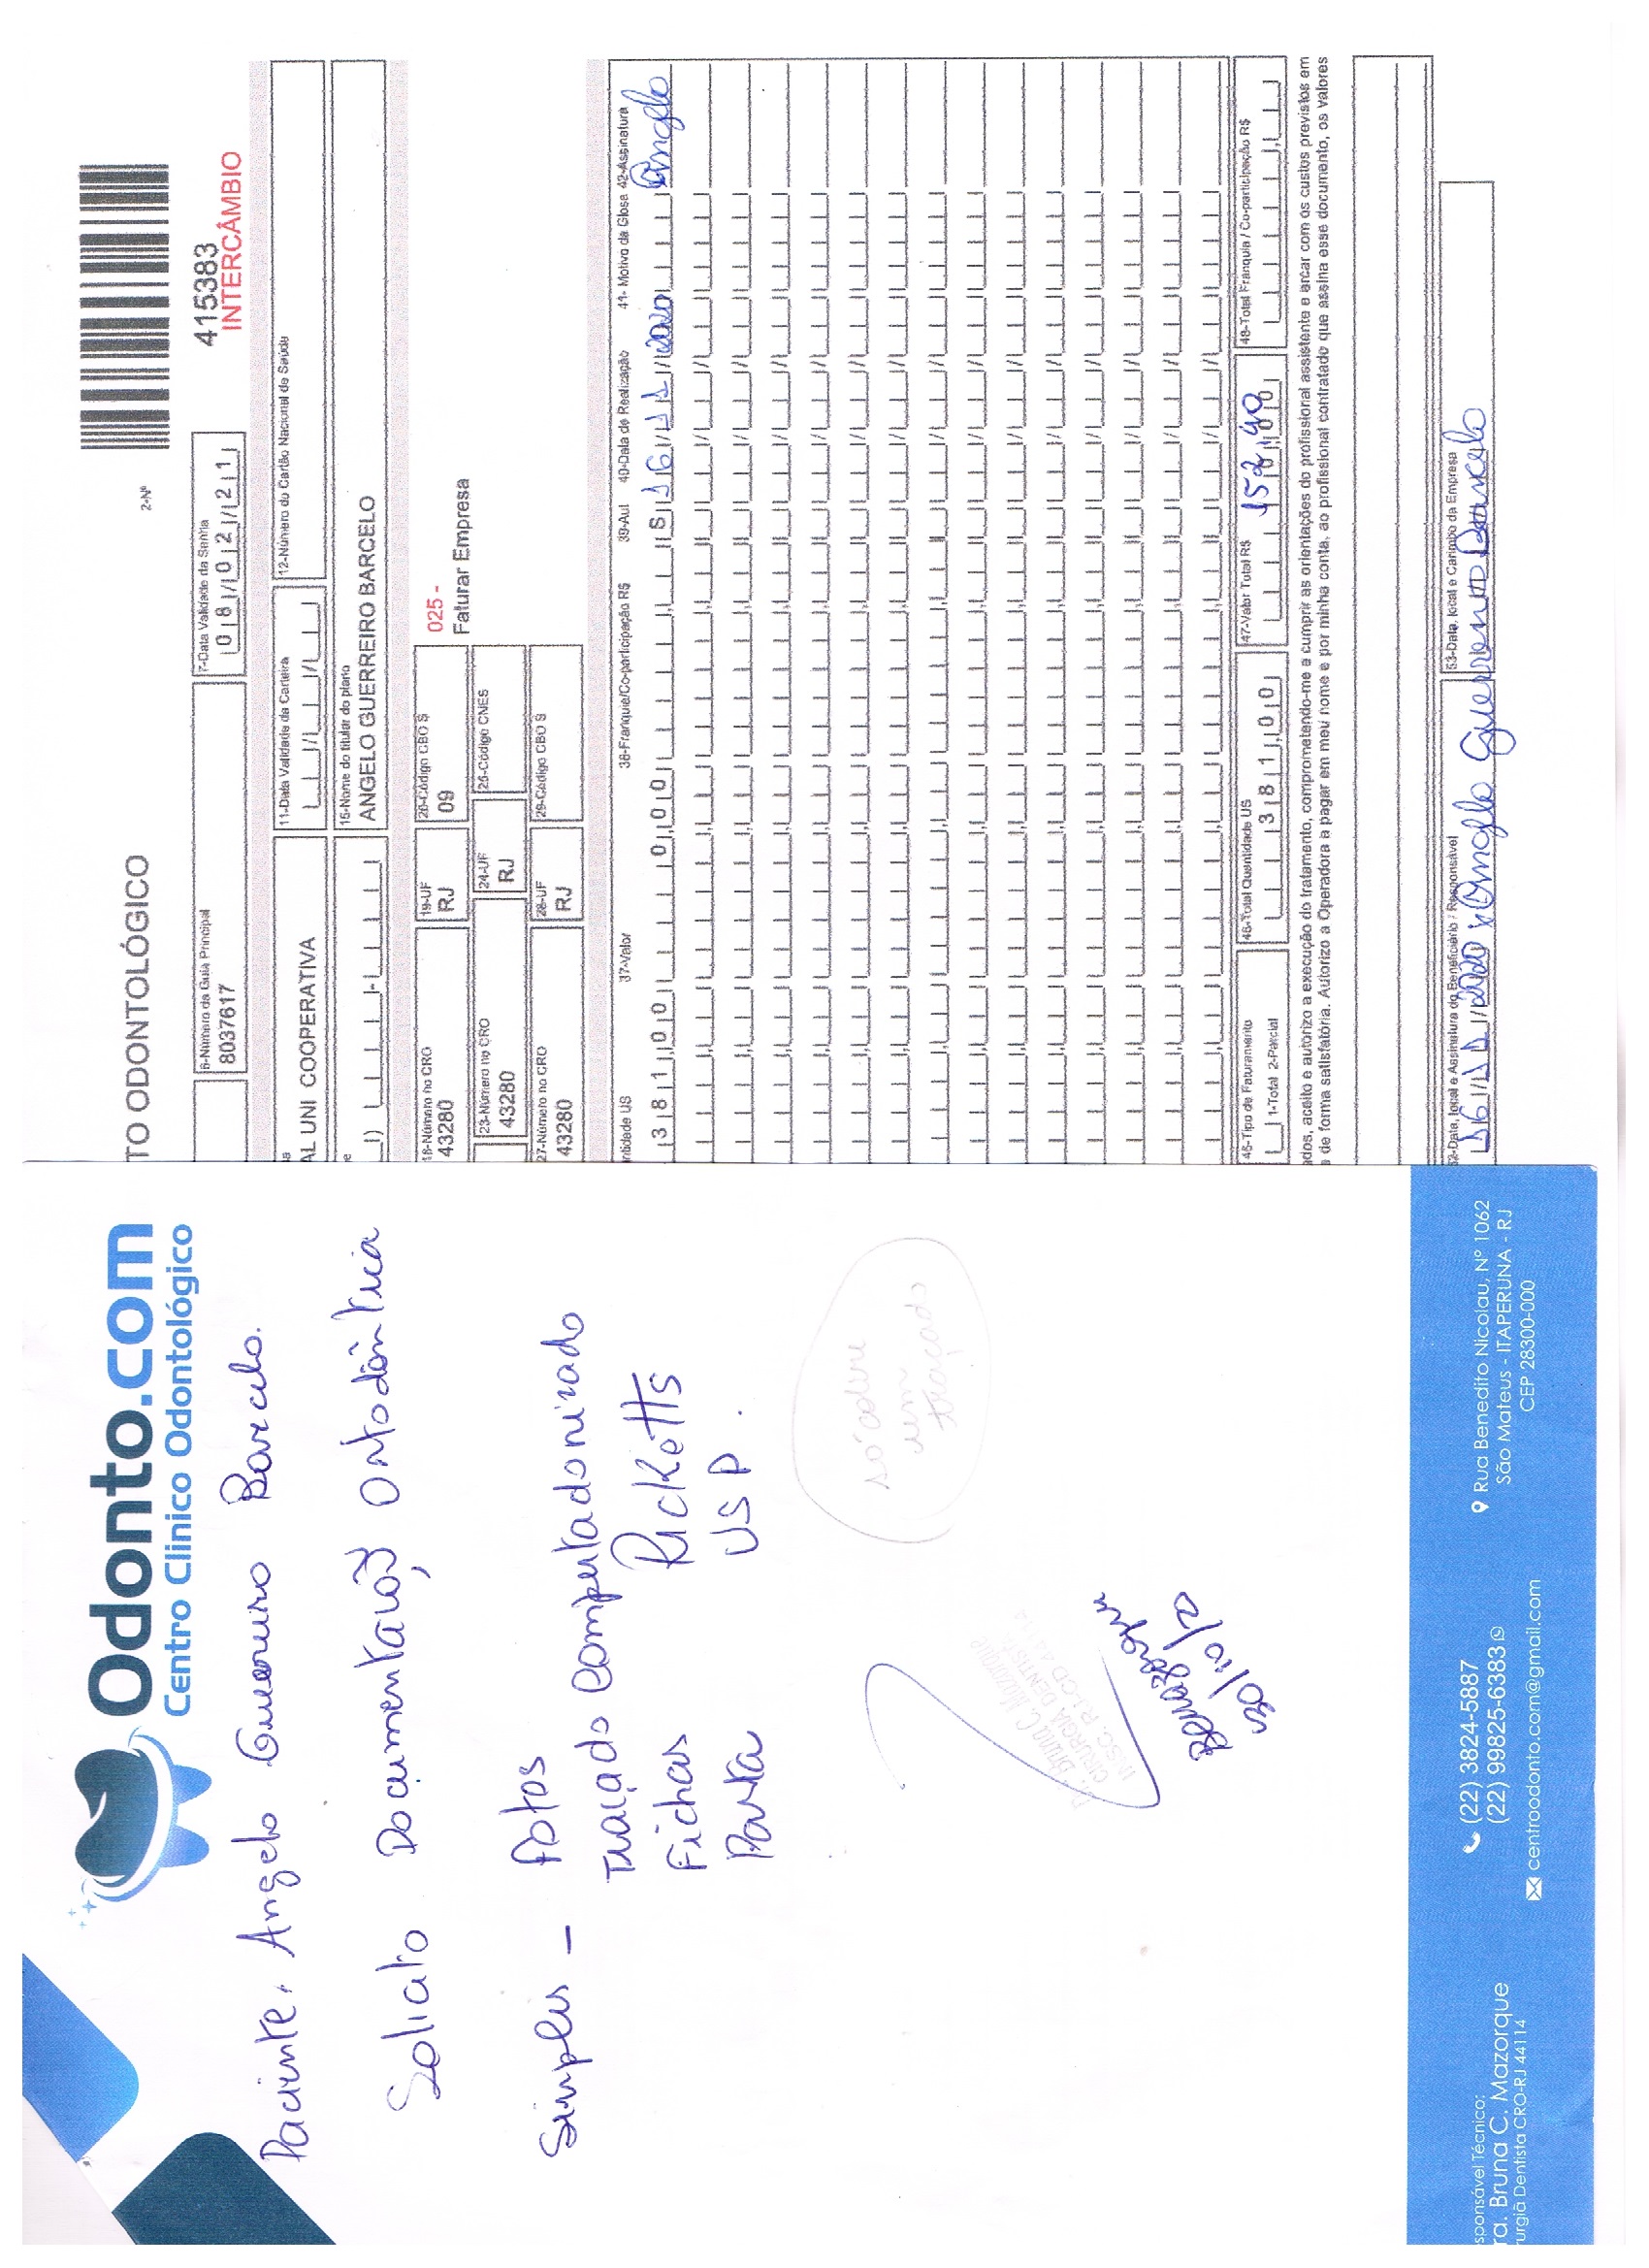 Odonto.com
Centro Clinico Odontológico
Paciente: Angelo Guerreiro Barcelo.
Solicito Documentação Ortodôntica
Simples - Fotos
Traçado Computadorizado
Fichas Ricketts
Pasta USP.
só cobre
um
traçado
Bmazorque
30/10/20
sponsável Técnico:
ra. Bruna C. Mazorque
urgiã Dentista CRO-RJ 44114
(22) 3824-5887
(22) 99825-6383
centroodonto.com@gmail.com
Rua Benedito Nicolau, Nº 1062
São Mateus - ITAPERUNA - RJ
CEP 28300-000
TO ODONTOLÓGICO
2-Nº
415383
INTERCÂMBIO
6-Número da Guia Principal
8037617
7-Data Validade da Senha
08/02/21
AL UNI COOPERATIVA
11-Data Validade da Carteira
12-Número do Cartão Nacional de Saúde
15-Nome do titular do plano
ANGELO GUERREIRO BARCELO
18-Número no CRO
43280
19-UF
RJ
20-Código CBO S
09
025 -
Faturar Empresa
23-Número no CRO
43280
24-UF
RJ
25-Código CNES
27-Número no CRO
43280
28-UF
RJ
29-Código CBO S
ntidade US 37-Valor 38-Franquia/Co-participação R$ 39-Aut 40-Data de Realização 41- Motivo da Glosa 42-Assinatura
381,00 0,00 S 16/11/2020 Angelo
45-Tipo de Faturamento
1-Total 2-Parcial
46-Total Quantidade US
381,00
47-Valor Total R$
152,40
48-Total Franquia / Co-participação R$
ados, aceito e autorizo a execução do tratamento, comprometendo-me a cumprir as orientações do profissional assistente e arcar com os custos previstos em
de forma satisfatória. Autorizo a Operadora a pagar em meu nome e por minha conta, ao profissional contratado que assina esse documento, os valores
52-Data, local e Assinatura do Beneficiário / Responsável
16/11/2020 Angelo Guerreiro Barcelo
53-Data, local e Carimbo da Empresa